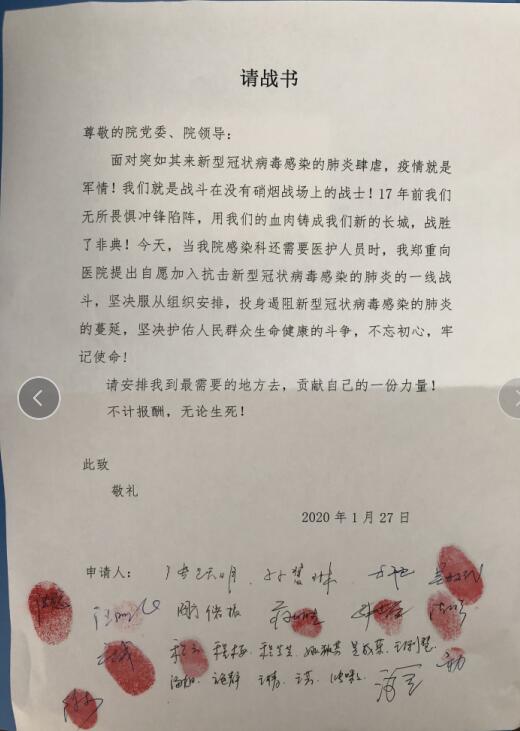 请战书
尊敬的院党委、院领导：
面对突如其来新型冠状病毒感染的肺炎肆虐，疫情就是
军情！我们就是战斗在没有硝烟战场上的战士！17 年前我们
无所畏惧冲锋陷阵，用我们的血肉铸成我们新的长城，战胜
了非典！今天，当我院感染科还需要医护人员时，我郑重向
医院提出自愿加入抗击新型冠状病毒感染的肺炎的一线战
斗，坚决服从组织安排，投身遏阻新型冠状病毒感染的肺炎
的蔓延，坚决护佑人民群众生命健康的斗争，不忘初心，牢
记使命！
请安排我到最需要的地方去，贡献自己的一份力量！
不计报酬，无论生死！
此致
敬礼
2020 年 1 月 27 日
申请人：